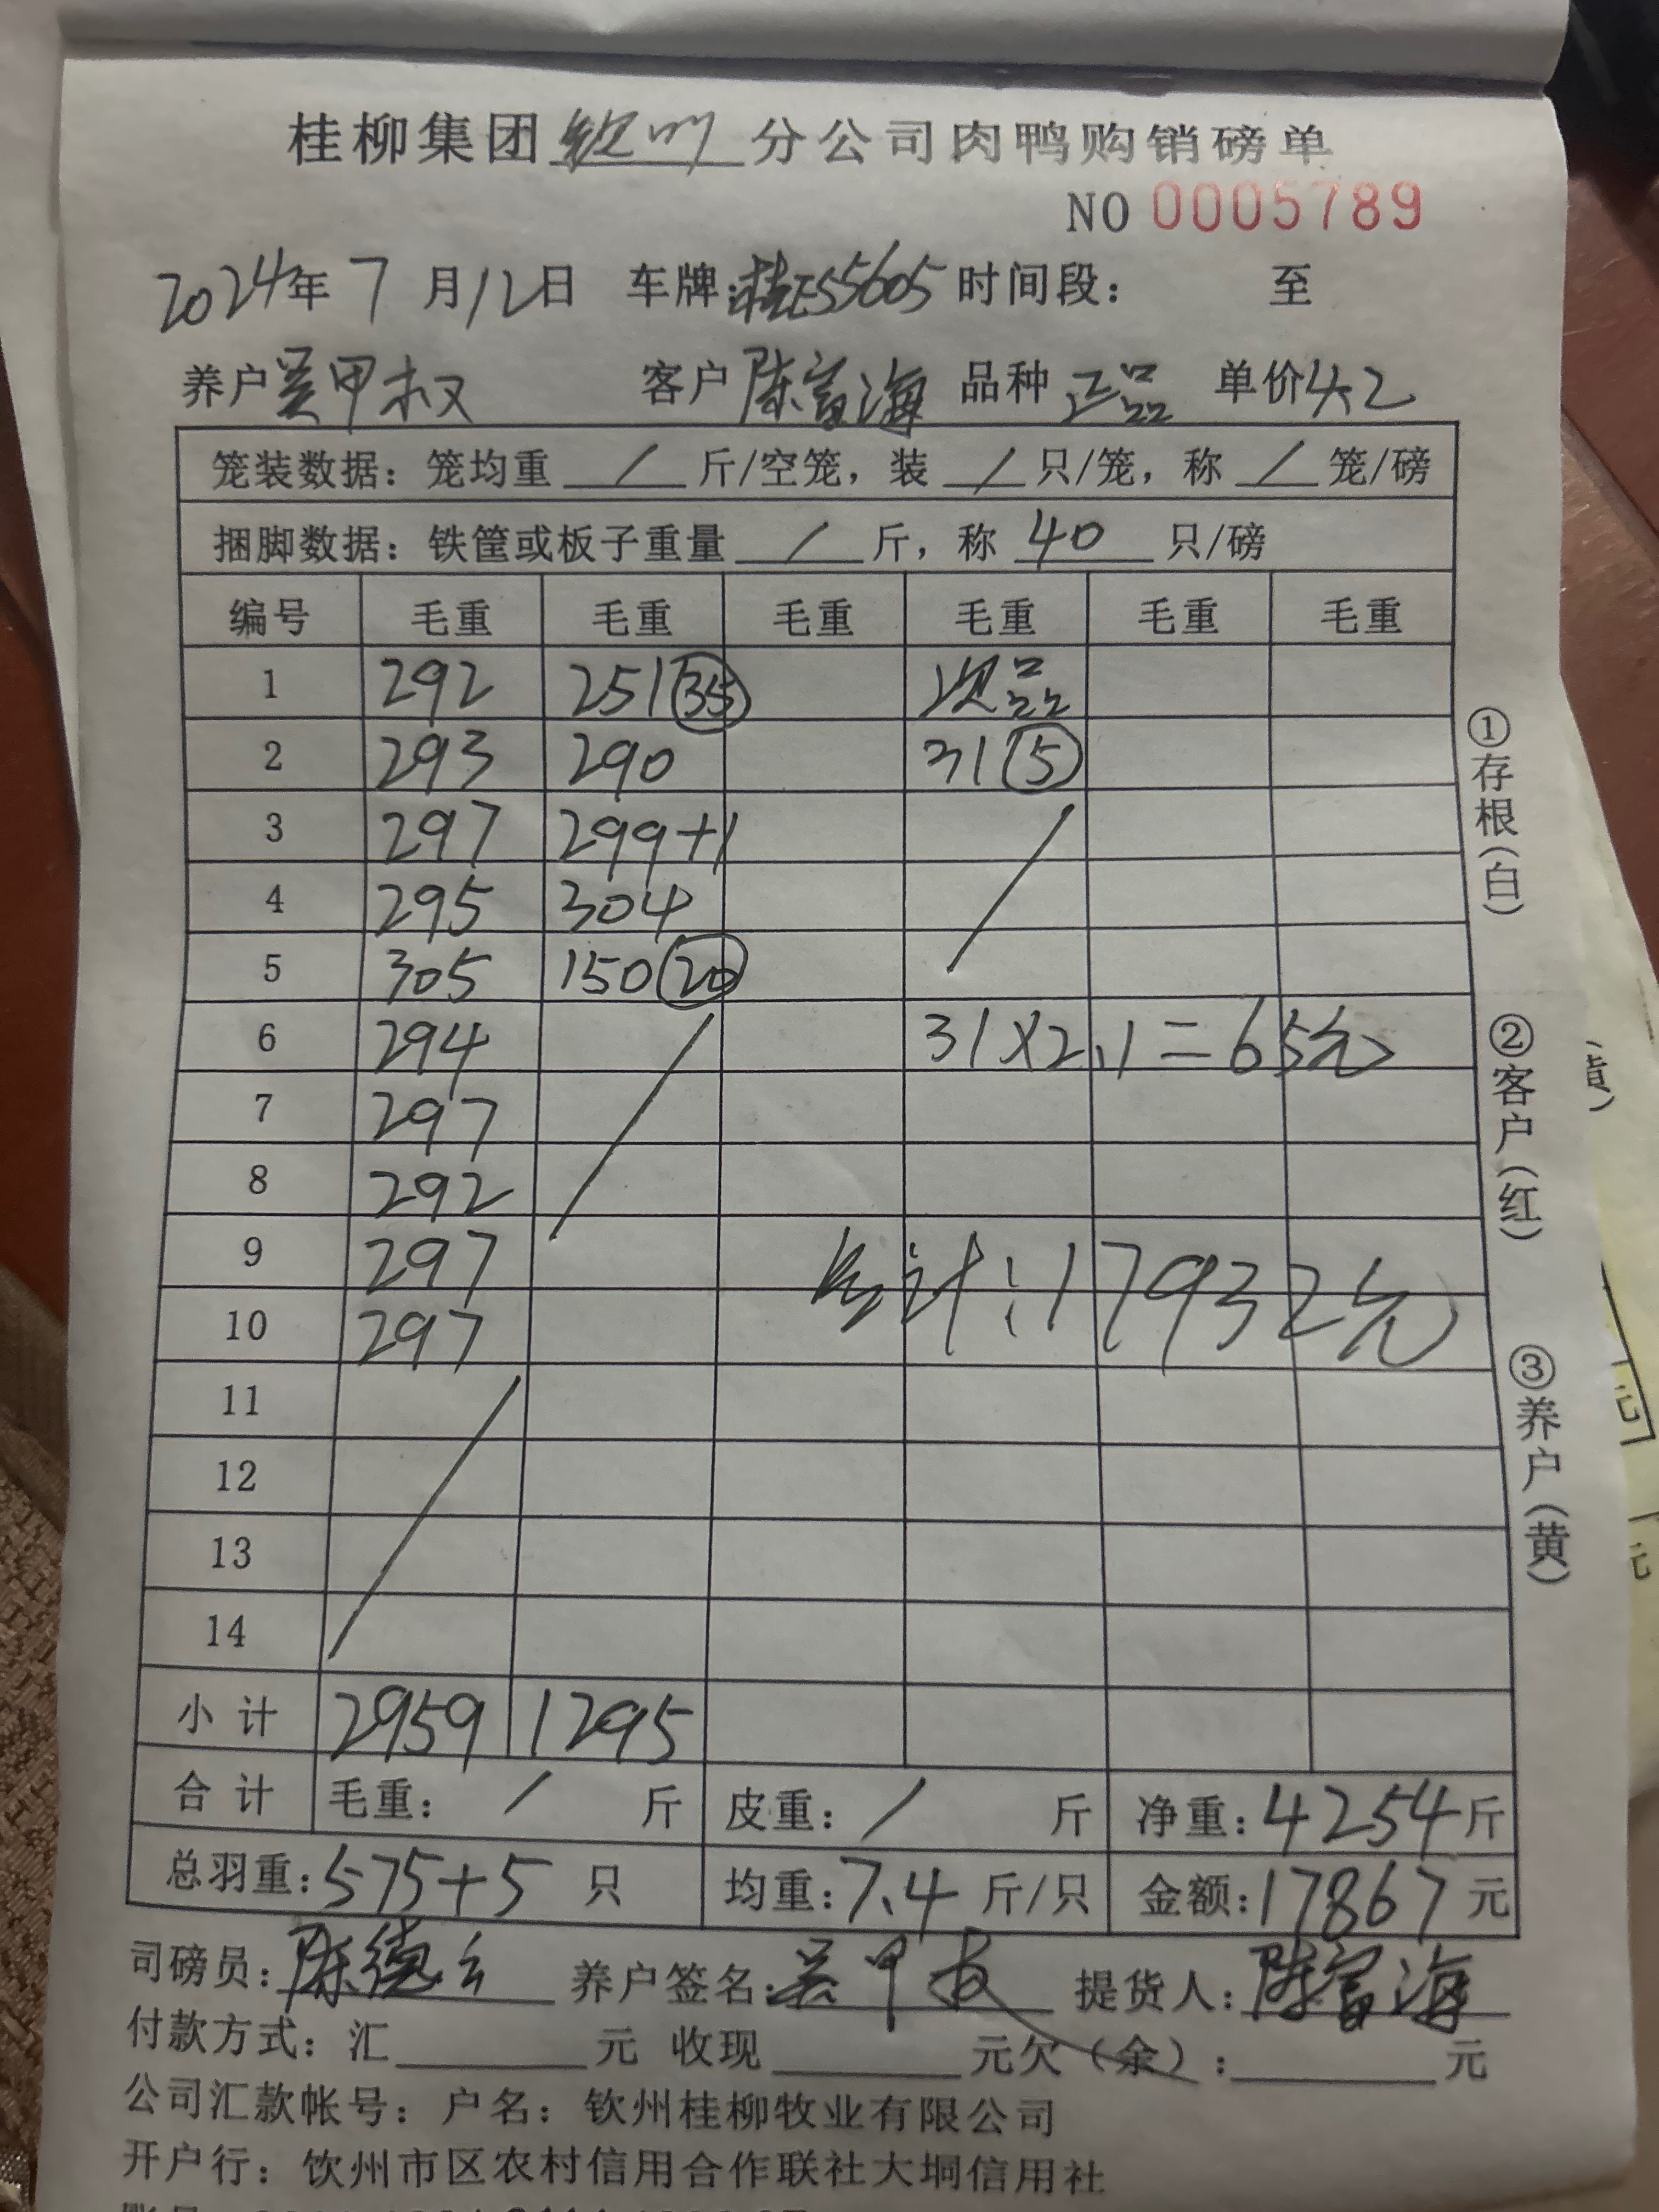 桂柳集团钦州分公司肉鸭购销磅单
NO 0005789
2024年7月12日 车牌:桂E55605 时间段: 至
养户 吴甲权 客户 陈富海 品种 正品 单价4.2
笼装数据: 笼均重 / 斤/空笼, 装 / 只/笼, 称 / 笼/磅
捆脚数据: 铁筐或板子重量 / 斤, 称 40 只/磅
编号 毛重 毛重 毛重 毛重 毛重 毛重
1 292 251 (35) 次品
2 293 290 31 (5)
3 297 299+1
4 295 304
5 305 150 (20)
6 294 31×2.1=65元
7 297
8 292
9 297 合计:17932元
10 297
11
12
13
14
小计 2959 1295
合计 毛重: / 斤 皮重: / 斤 净重:4254斤
总羽重:575+5 只 均重:7.4 斤/只 金额:17867元
司磅员: 陈德 养户签名: 吴甲权 提货人: 陈富海
付款方式: 汇 元 收现 元欠(余): 元
公司汇款帐号: 户名: 钦州桂柳牧业有限公司
开户行: 饮州市区农村信用合作联社大垌信用社
①存根(白)
②客户(红)
③养户(黄)
黄)
元
元